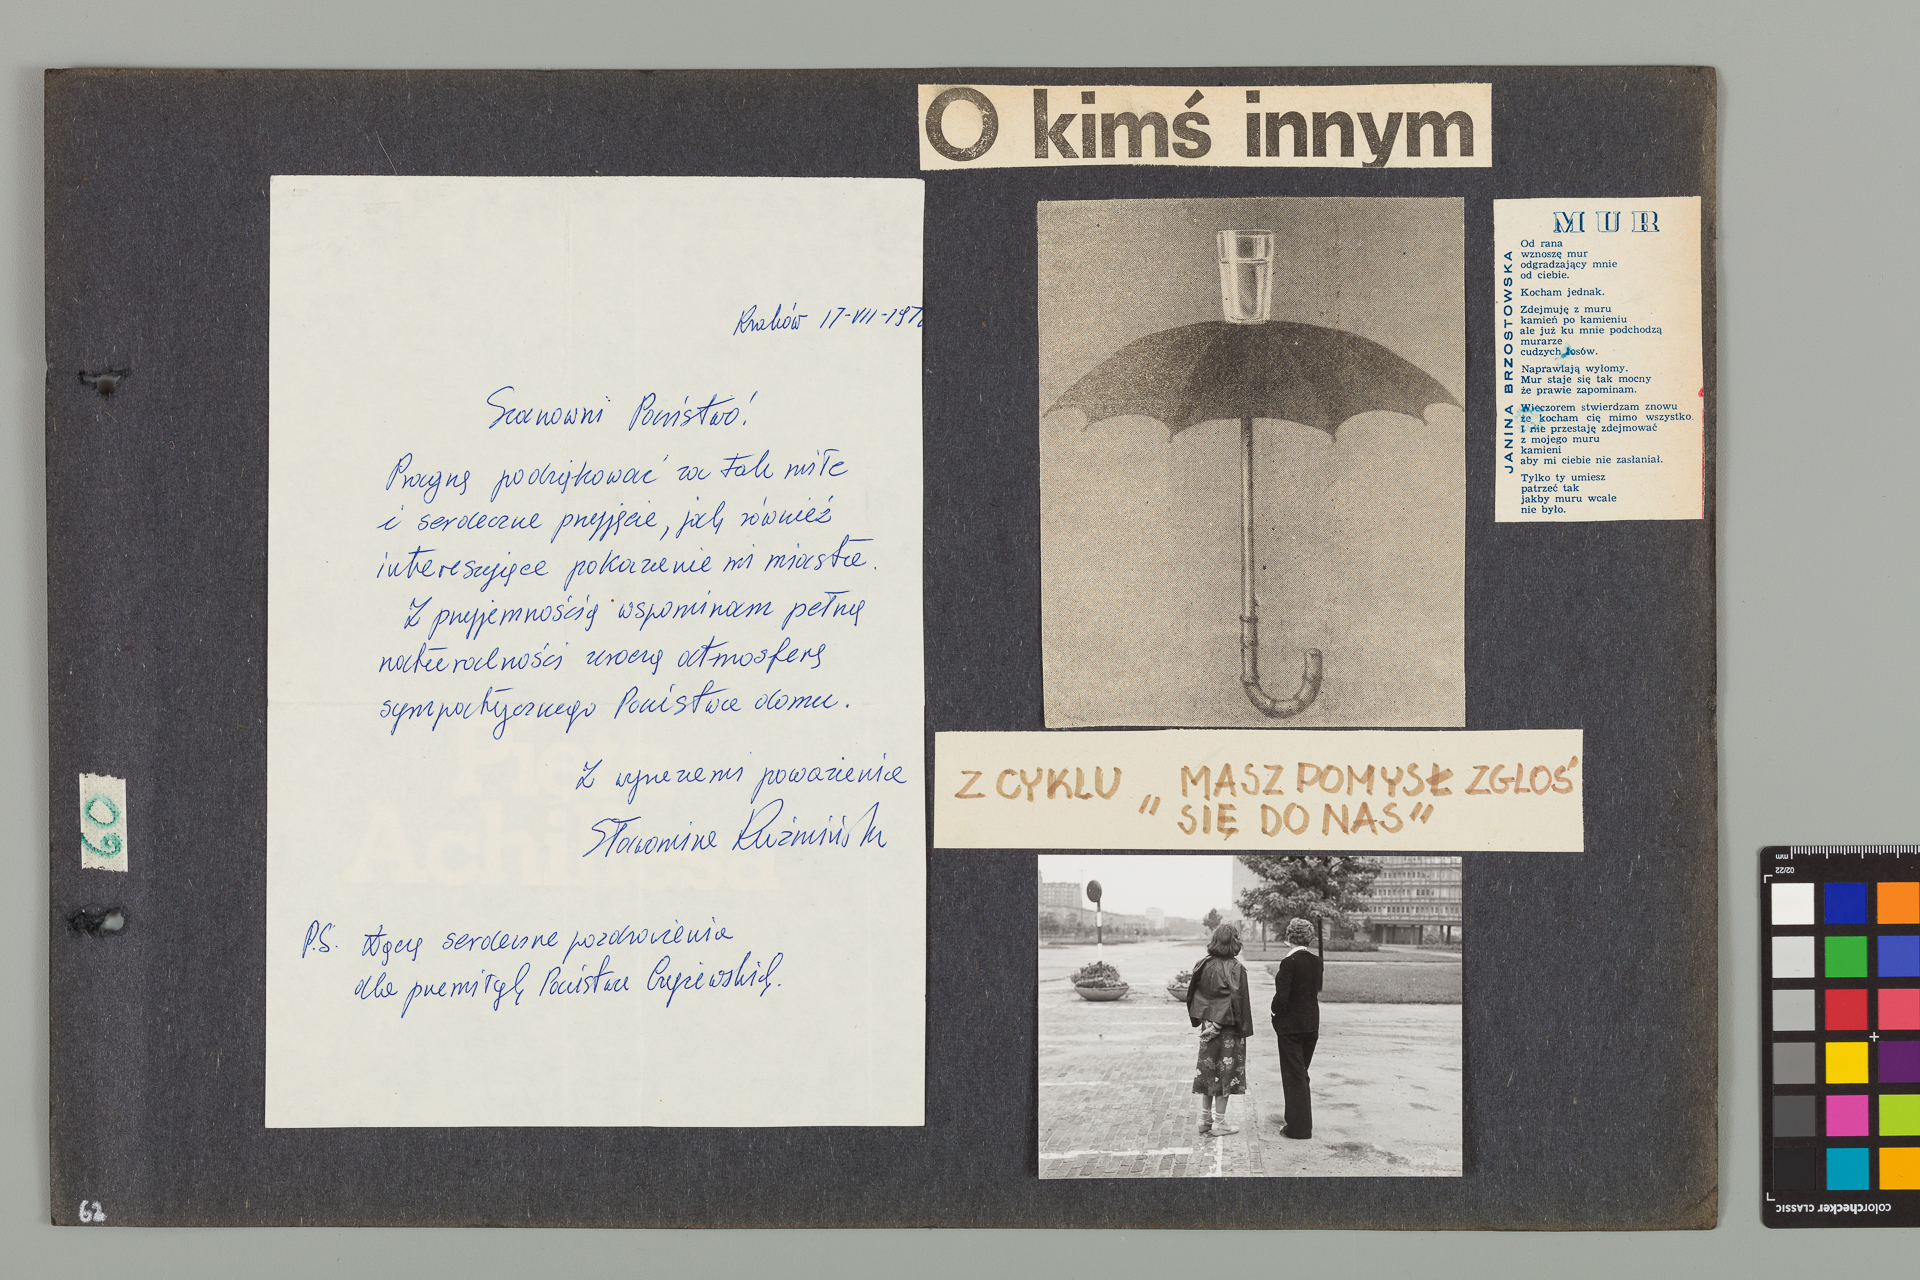 O kimś innym
Kraków 17-VII-197
Szanowni Państwo!
Pragnę podziękować za tak miłe
i serdeczne przyjęcie, jak również
interesujące pokazanie mi miasta.
Z przyjemnością wspominam pełną
naturalności uroczą atmosferę
sympatycznego Państwa domu.
Z wyrazami poważania
Sławomira
P.S. Łączę serdeczne pozdrowienia
dla przemiłych Państwa
MUR
JANINA BRZOSTOWSKA
Od rana
wznoszę mur
odgradzający mnie
od ciebie.
Kocham jednak.
Zdejmuję z muru
kamień po kamieniu
ale już ku mnie podchodzą
murarze
cudzych losów.
Naprawiają wyłomy.
Mur staje się tak mocny
że prawie zapominam.
Wieczorem stwierdzam znowu
że kocham cię mimo wszystko.
I nie przestaję zdejmować
z mojego muru
kamieni
aby mi ciebie nie zasłaniał.
Tylko ty umiesz
patrzeć tak
jakby muru wcale
nie było.
Z CYKLU „ MASZ POMYSŁ ZGŁOŚ
SIĘ DO NAS"
60
62
mm
02/22
colorchecker CLASSIC